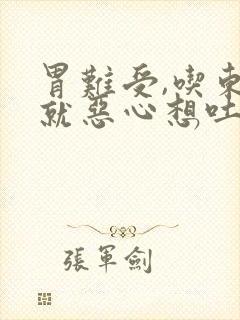 胃難受,喫東
就惡心想吐
張軍劍